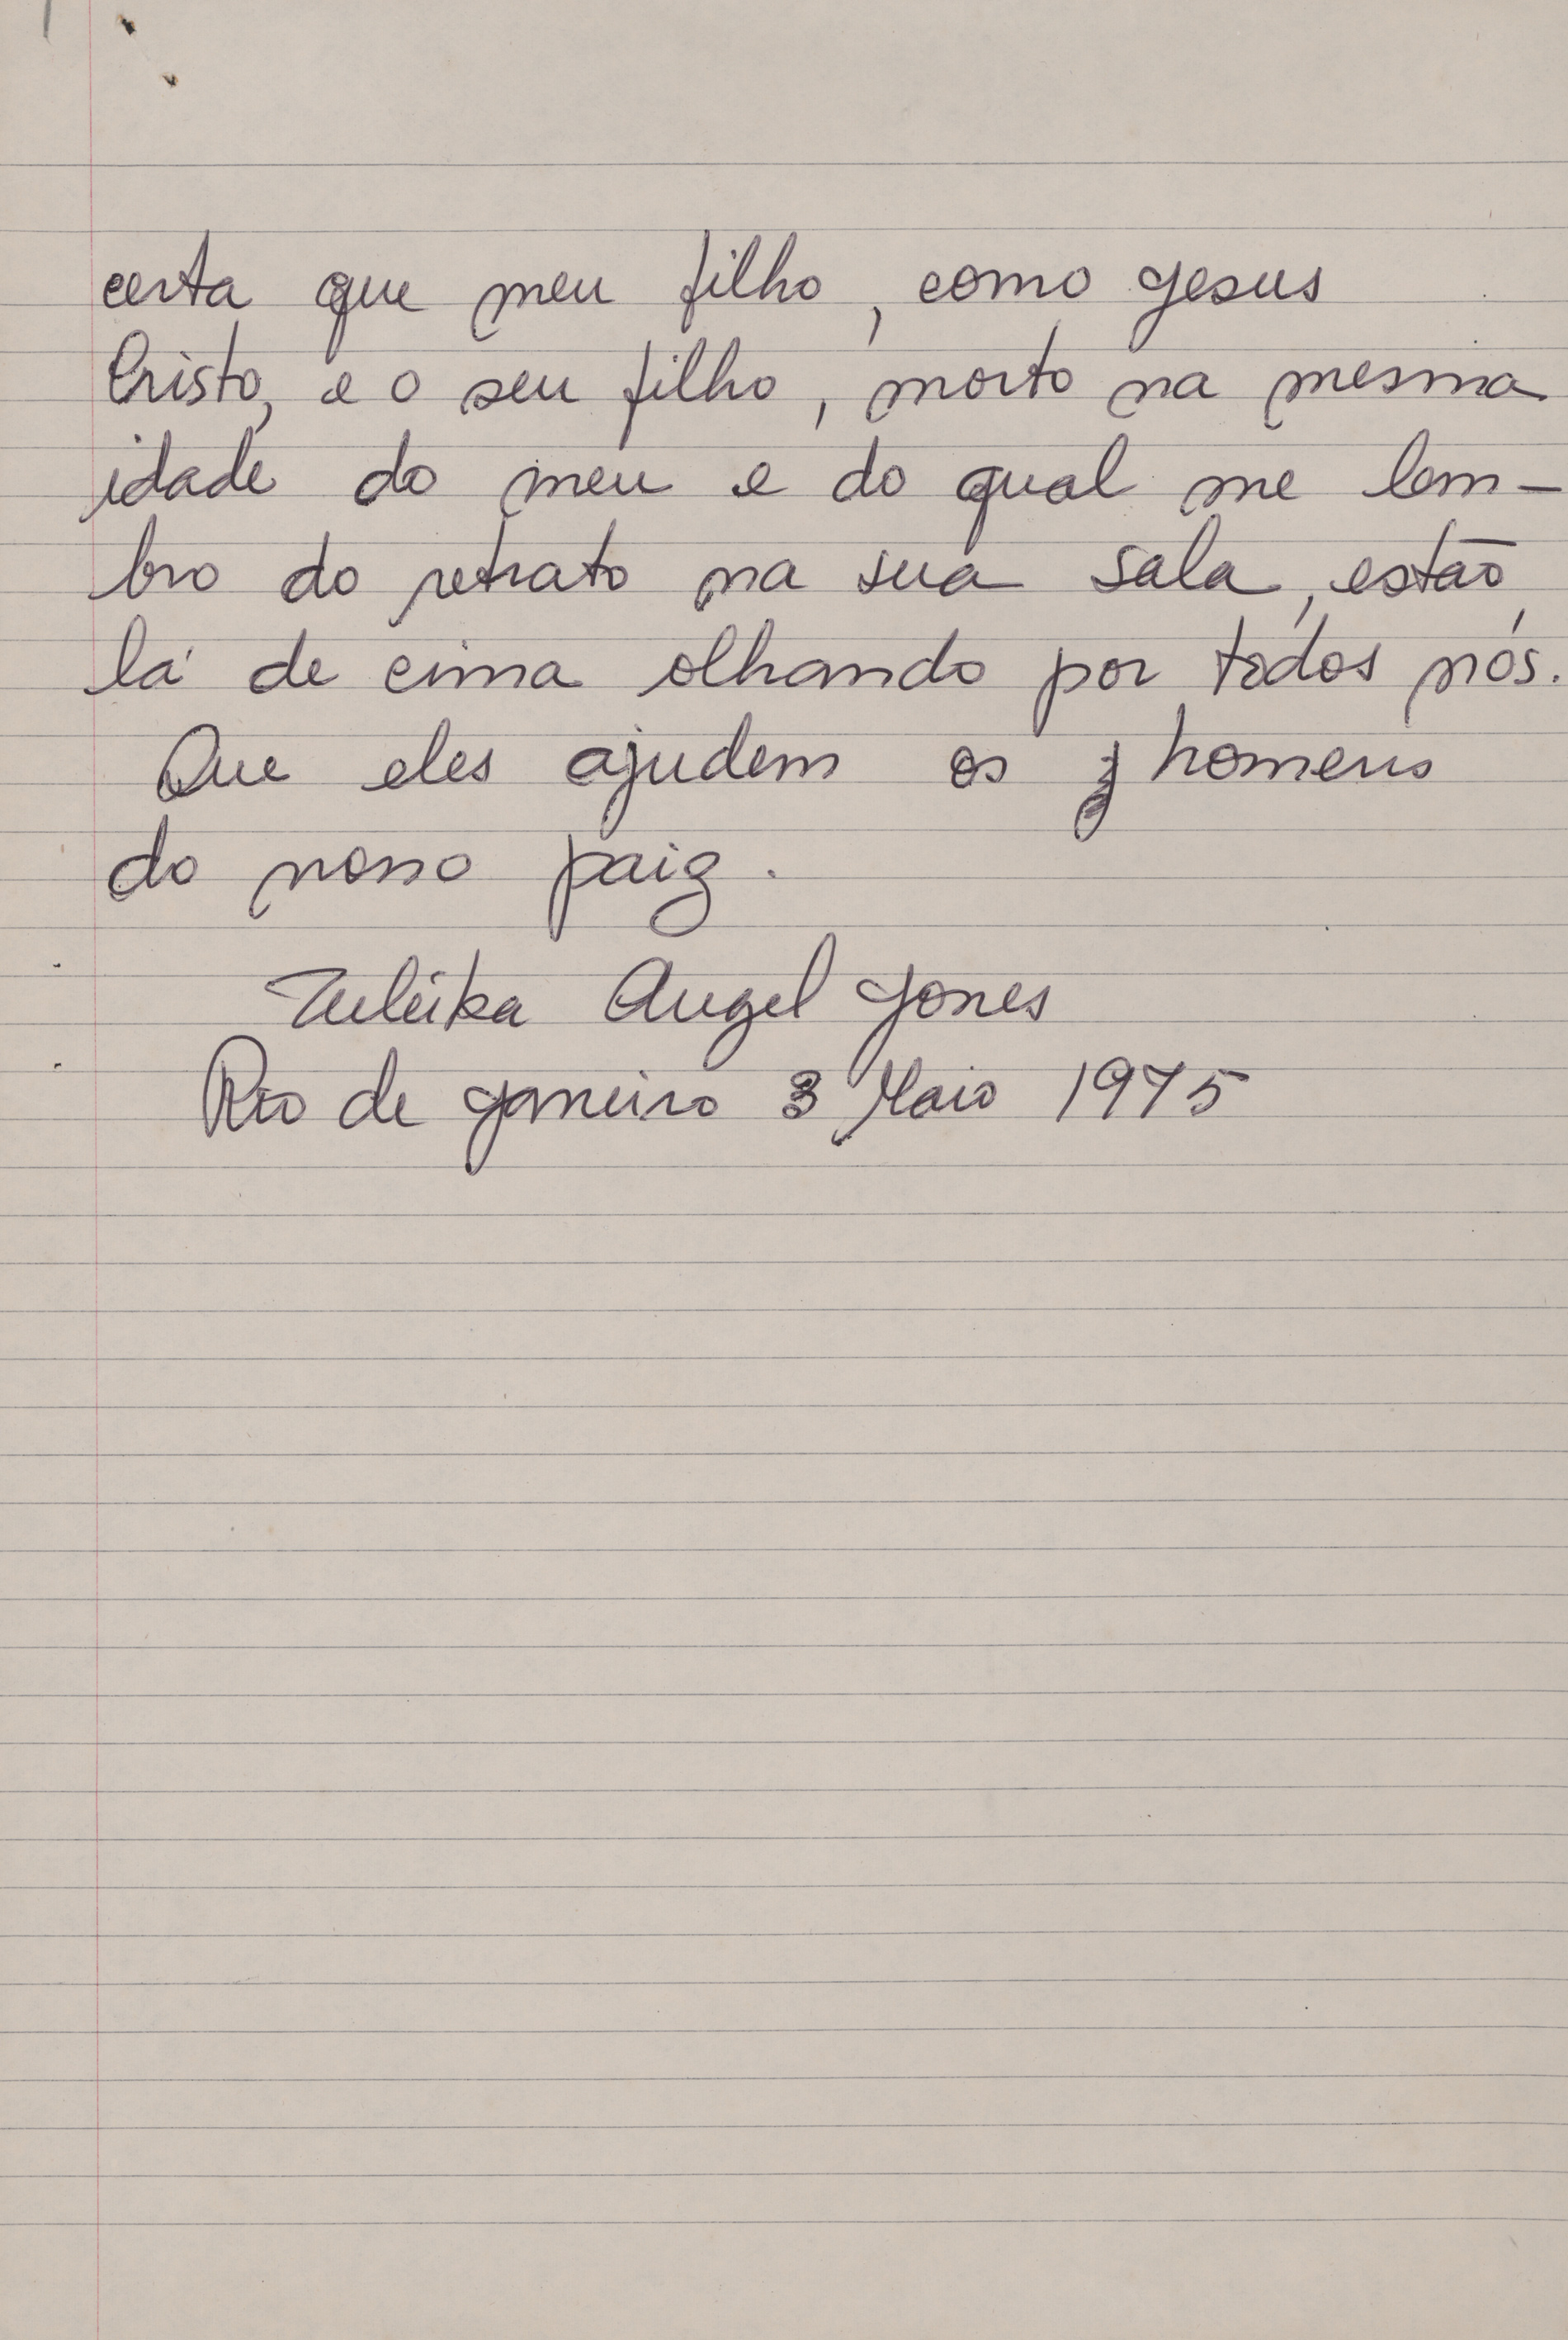 certa que meu filho, como Jesus
Cristo, e o seu filho, morto na mesma
idade do meu e do qual me lem-
bro do retrato na sua sala, estão,
lá de cima olhando por todos nós.
Que eles ajudem os homens
do nosso paiz.
Zuleika Angel Jones
Rio de Janeiro 3 Maio 1975